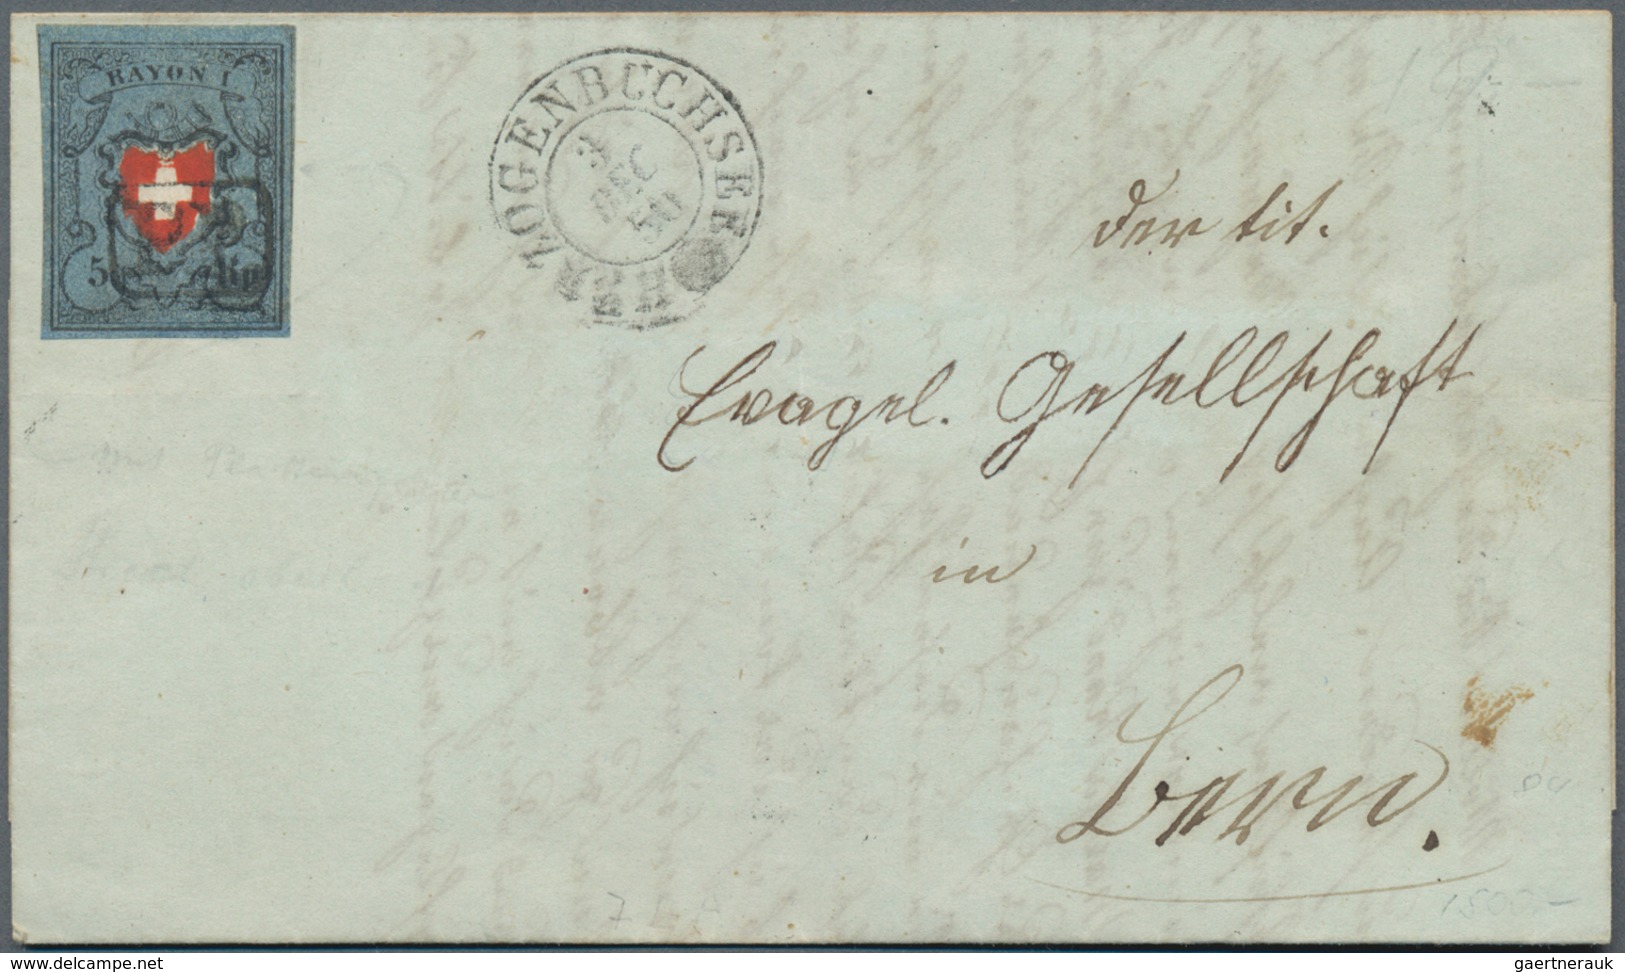 RAYON I
5 Rp
HERZOGENBUCHSEE
3
DEC
50
der tit.
Evagel. Gesellschaft
in
Bern.
1500.-
delcampe.net
gaertnerauk